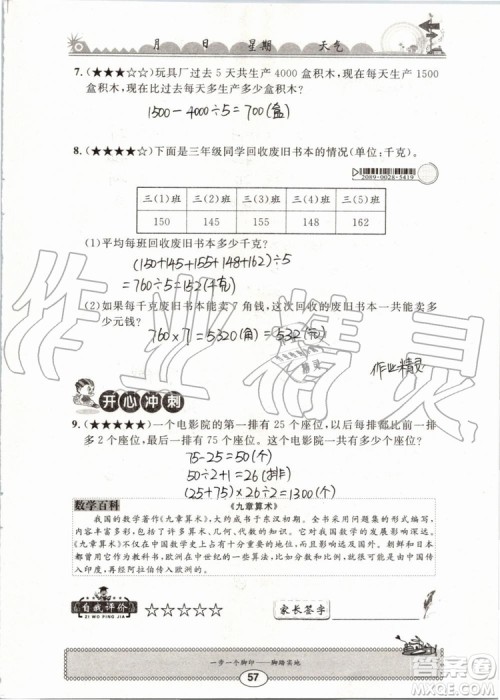 月 日 星期 天气
7.(★★★☆☆)玩具厂过去 5 天共生产 4000 盒积木,现在每天生产 1500
盒积木,现在比过去每天多生产多少盒积木?
1500-4000÷5=700(盒)
8.(★★★★☆)下面是三年级同学回收废旧书本的情况(单位:千克)。
2089-0028-5419
三(1)班 三(2)班 三(3)班 三(4)班 三(5)班
150 145 155 148 162
(1)平均每班回收废旧书本多少千克?
(150+145+155+148+162)÷5
=760÷5=152(千克)
(2)如果每千克废旧书本能卖 7 角钱,这次回收的废旧书本一共能卖多
少元钱?
760×7=5320(角)=532(元)
作业精灵
开心冲刺
9.(★★★★★)一个电影院的第一排有 25 个座位,以后每排比前一排多
2 个座位,最后一排有 75 个座位。这个电影院一共有多少个座位?
75-25=50(个)
50÷2+1=26(排)
(25+75)×26÷2=1300(个)
数学百科
《九章算术》
我国的数学著作《九章算术》,大约成书于东汉初期。全书采用问题集的形式编写,
内容丰富多彩,包括了许多算术、几何、代数的知识。它对我国数学的发展有很大的影
响,这些影响不仅在中国数学史上占有重要地位,并影响到国外。朝鲜和日本
都曾用它作为教科书,欧洲在中世纪的一些算法,比如分数和比例,就很可能由中国传
入印度,再经阿拉伯传入欧洲。
自我评价
ZI WO PING JIA
☆☆☆☆☆
家长签字
一步一个脚印——脚踏实地
57
作业精灵
答案圈